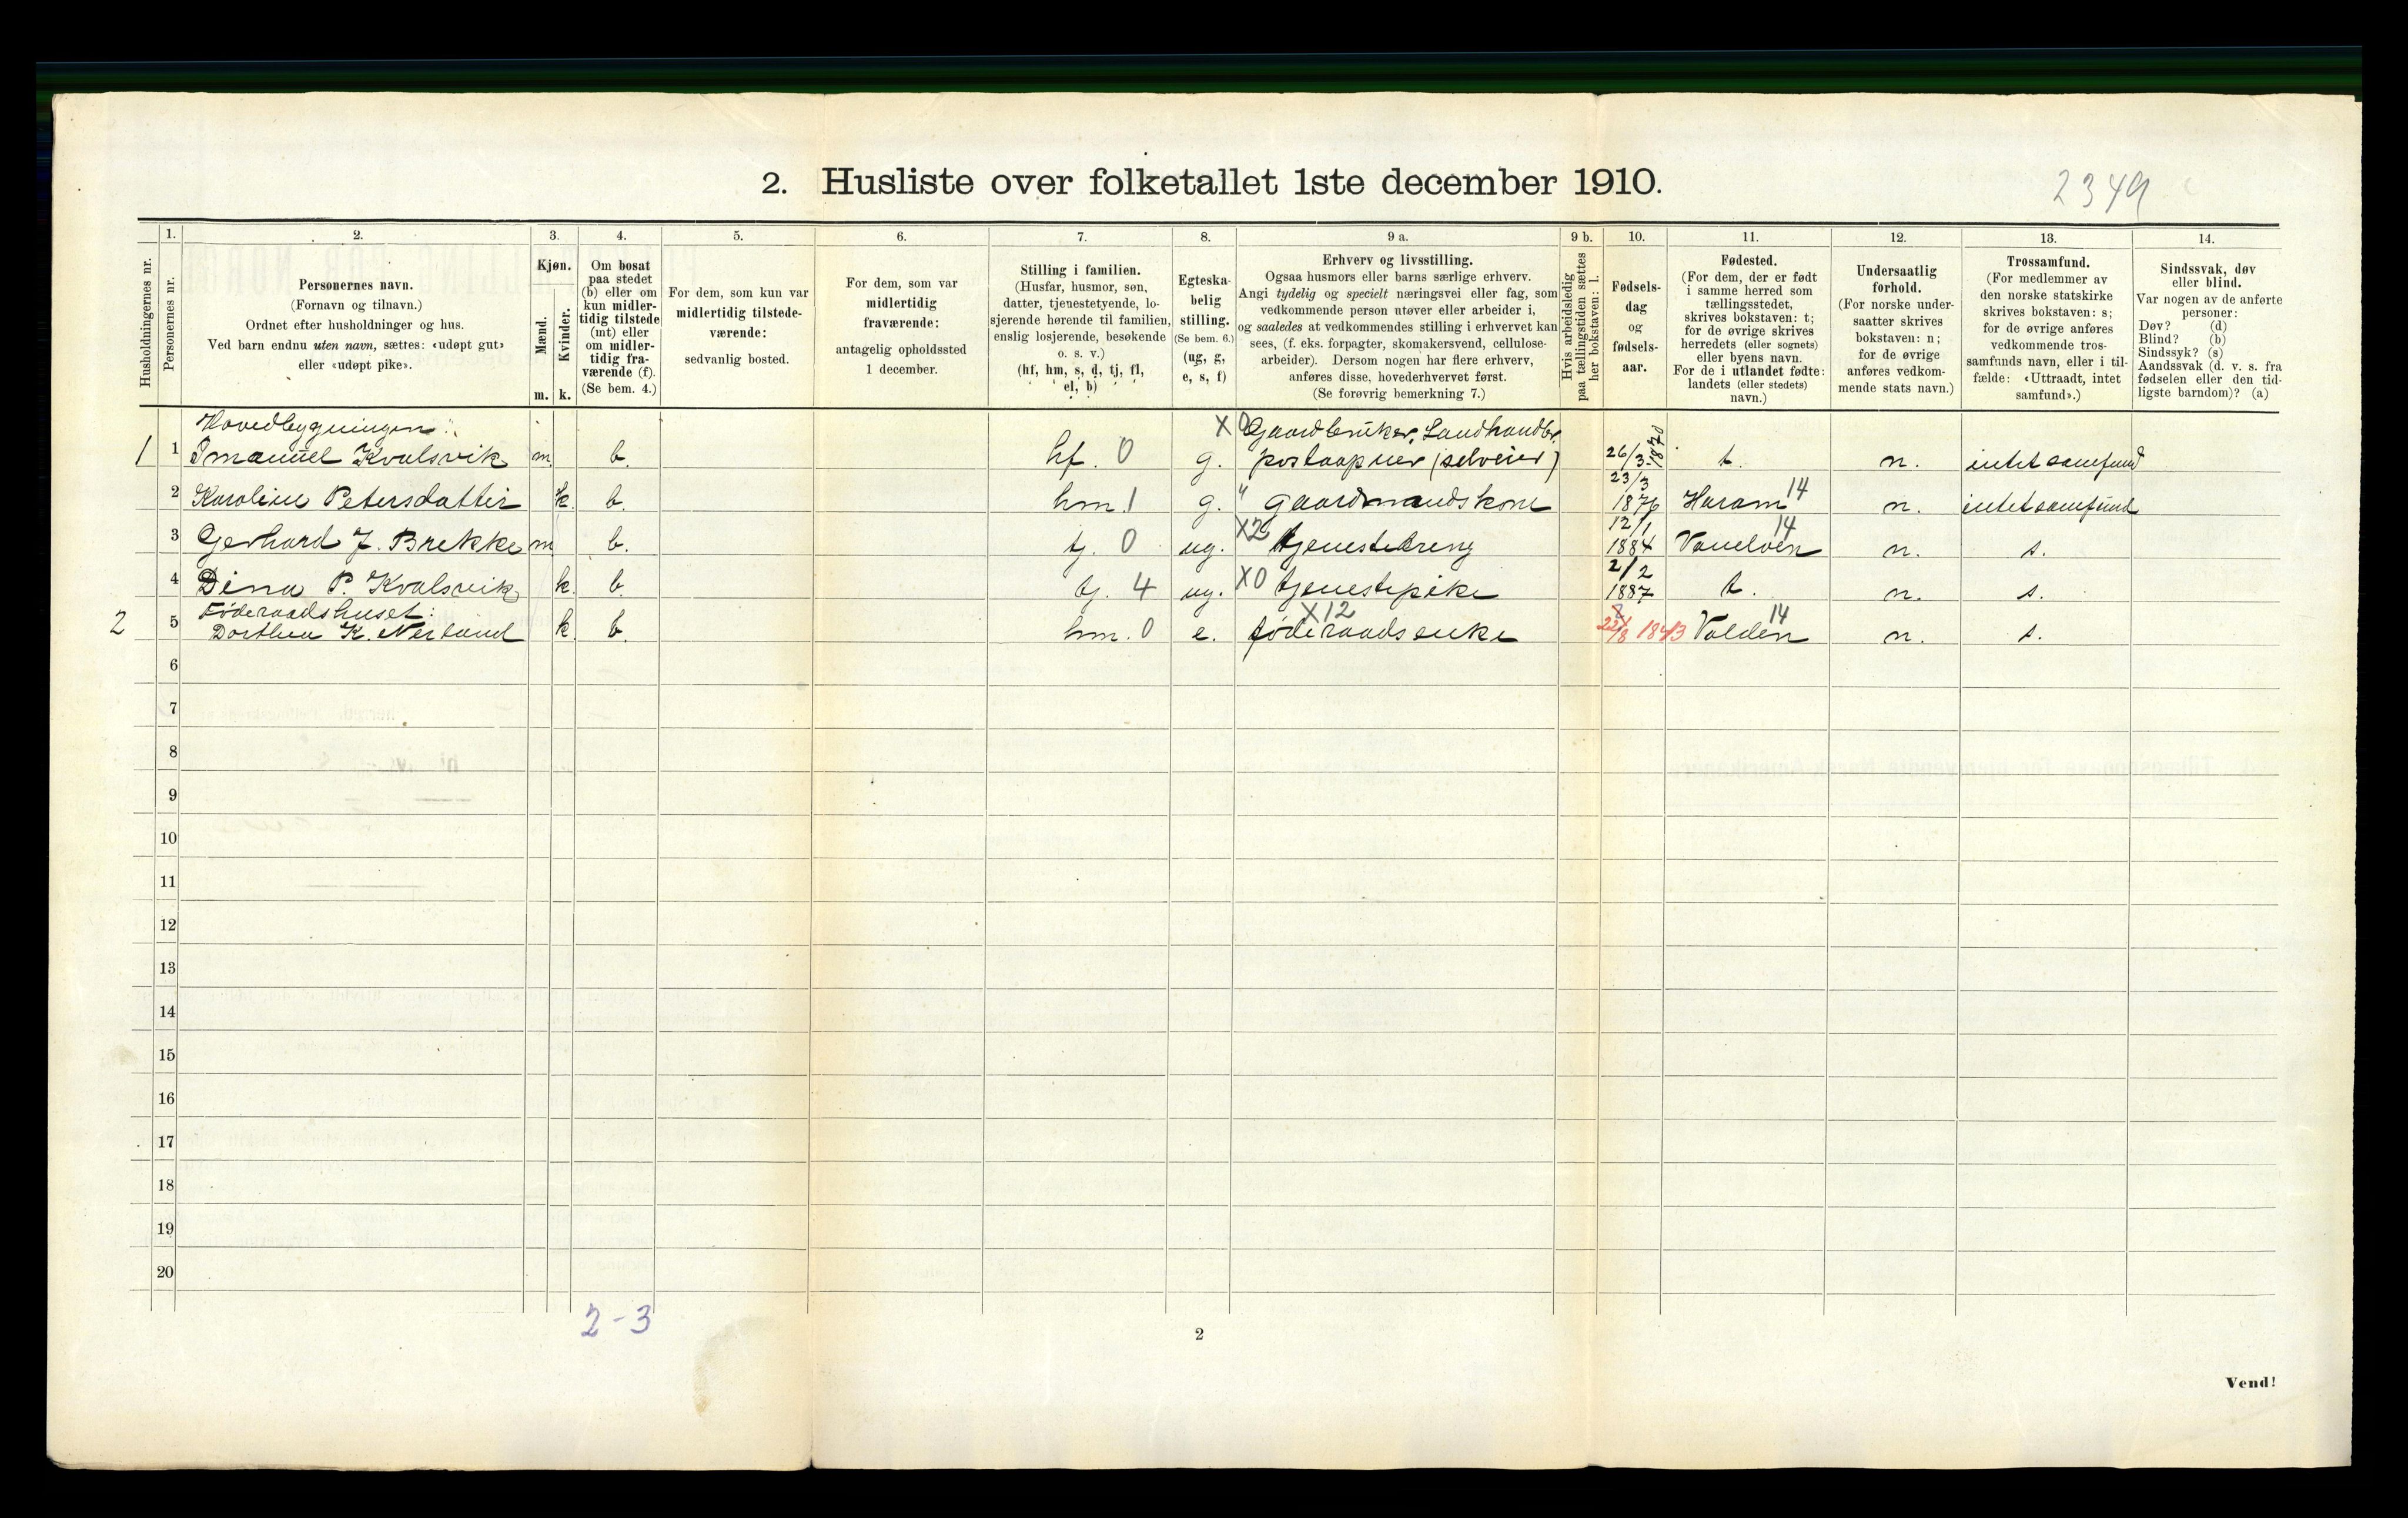 2. Husliste over folketallet 1ste december 1910.
2349
Husholdningernes nr.
1.
Personernes nr.
2.
Personernes navn.
(Fornavn og tilnavn.)
Ordnet efter husholdninger og hus.
Ved barn endnu uten navn, sættes: «udøpt gut»
eller «udøpt pike».
3.
Kjøn.
Mænd.
Kvinder.
m. k.
4.
Om bosat
paa stedet
(b) eller om
kun midler-
tidig tilstede
(mt) eller
om midler-
tidig fra-
værende (f).
(Se bem. 4.)
5.
For dem, som kun var
midlertidig tilstede-
værende:
sedvanlig bosted.
6.
For dem, som var
midlertidig
fraværende:
antagelig opholdssted
1 december.
7.
Stilling i familien.
(Husfar, husmor, søn,
datter, tjenestetyende, lo-
sjerende hørende til familien,
enslig losjerende, besøkende
o. s. v.)
(hf, hm, s, d, tj, fl,
el, b)
8.
Egteska-
belig
stilling.
(Se bem. 6.)
(ug, g,
e, s, f)
9 a.
Erhverv og livsstilling.
Ogsaa husmors eller barns særlige erhverv.
Angi tydelig og specielt næringsvei eller fag, som
vedkommende person utøver eller arbeider i,
og saaledes at vedkommendes stilling i erhvervet kan
sees, (f. eks. forpagter, skomakersvend, cellulose-
arbeider). Dersom nogen har flere erhverv,
anføres disse, hovederhvervet først.
(Se forøvrig bemerkning 7.)
9 b.
Hvis arbeidsledig
paa tællingstiden sættes
her bokstaven: l.
10.
Fødsels-
dag
og
fødsels-
aar.
11.
Fødested.
(For dem, der er født
i samme herred som
tællingsstedet,
skrives bokstaven: t;
for de øvrige skrives
herredets (eller sognets)
eller byens navn.
For de i utlandet fødte:
landets (eller stedets)
navn.)
12.
Undersaatlig
forhold.
(For norske under-
saatter skrives
bokstaven: n;
for de øvrige
anføres vedkom-
mende stats navn.)
13.
Trossamfund.
(For medlemmer av
den norske statskirke
skrives bokstaven: s;
for de øvrige anføres
vedkommende tros-
samfunds navn, eller i til-
fælde: «Uttraadt, intet
samfund».)
14.
Sindssvak, døv
eller blind.
Var nogen av de anførte
personer:
Døv? (d)
Blind? (b)
Sindssyk? (s)
Aandssvak (d. v. s. fra
fødselen eller den tid-
ligste barndom)? (a)
Hovedbygningen: X Gaardbruker, Landhandler,
1 1 Imanuel Kvalsvik m. b. hf. 0 g. postaapner (selveier) 26/3 1870 t. n. intet samfund
2 Karoline Petersdatter k. b. hm. 1 g. " gaardmandskone 23/3 1876 Haram 14 n. intet samfund
3 Gerhard J. Brekke m b. tj. 0 ug. X2 tjenestedreng 12/1 1884 Vanelven 14 n. s.
4 Dina P. Kvalsvik k. b. tj. 4 ug. X0 tjenestepike 2/2 1887 t. n. s.
Føderaadshuset:
2 5 Dorthea K. Nerland k b. hm. 0 e. X12 føderaadsenke 22/8 1843 Volden 14 n. s.
6
7
8
9
10
11
12
13
14
15
16
17
18
19
20
2-3
2
Vend!